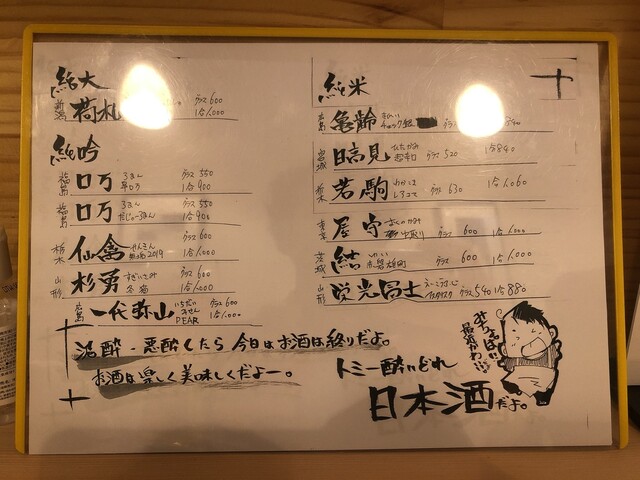 純大
新潟 高札 グラス 600 1合 1,000
純吟
福島 ロ万 ろまん グラス 550 1合 900
福島 ロ万 ろまん だぢゅーろまん グラス 550 1合 900
栃木 仙禽 せんきん 2019 グラス 600 1合 1,000
山形 杉勇 すぎいさみ グラス 600 1合 1,000
広島 一代弥山 いちだい みせん PEAR グラス 600 1合 1,000
泥酔・悪酔くたら今日はお酒は終りだよ。
お酒は楽しく美味しくだよー。
純米
広島 亀齢 グラス
宮城 日高見 ひたかみ 超辛口 グラス 520 1合 840
栃木 若駒 わかこま グラス 630 1合 1,060
東京 屋守 おくのかみ 中取り グラス 600 1合 1,000
茨城 結 ゆい 雄町 グラス 600 1合 1,000
山形 栄光冨士 えいこうふじ グラス 540 1合 880
トミー酔いどれ
日本酒だよ。